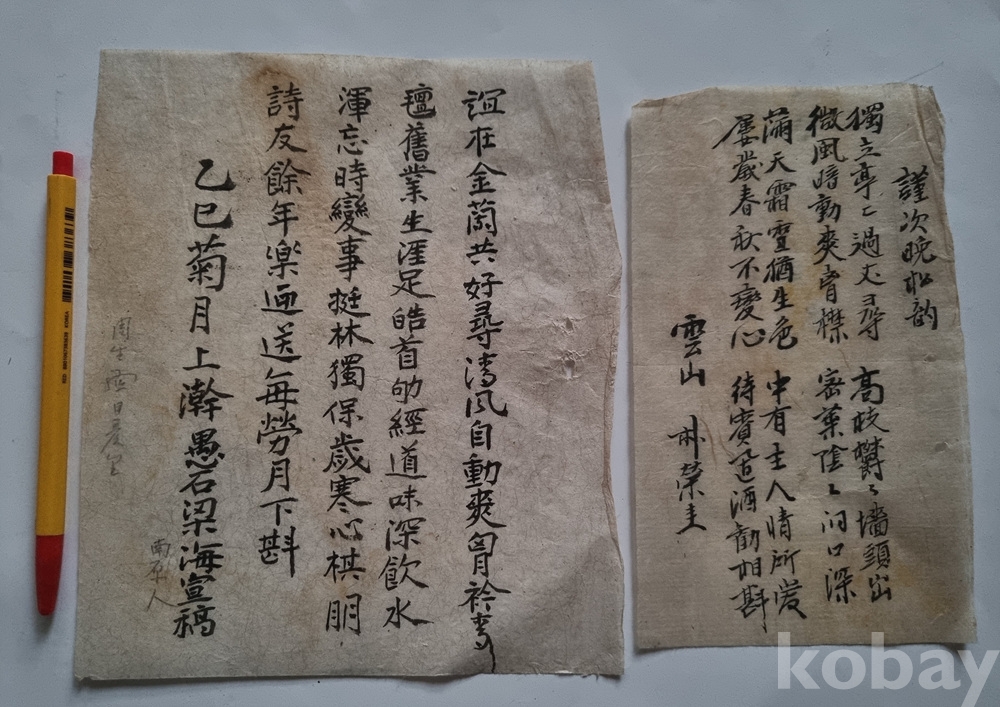 謹次晩松韵
獨立亭〻過丈尋 高枝欝〻墻頭出
微風暗動爽胷襟 密葉陰〻洞口深
滿天霜雪猶生色 中有主人情所愛
屢歲春秋不變心 待賓沽酒勸相斟
雲山 朴榮圭
誼在金蘭共好尋清风自動爽胷衿靑
氊舊業生涯足皓首劬經道味深飲水
渾忘時變事挺林獨保歲寒心棋朋
詩友餘年樂迎送每勞月下斟
乙巳菊月上澣愚石梁海宣稿
周生面
南原人
kobay